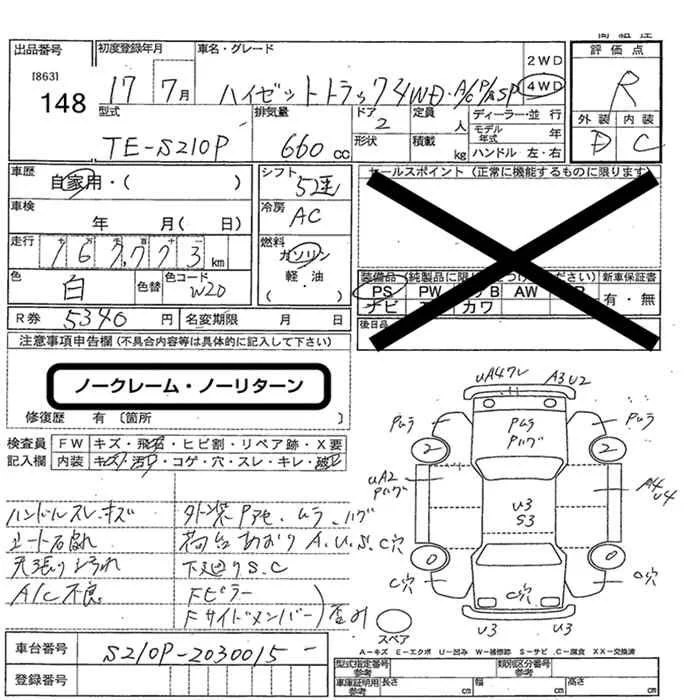 出品番号 初度登録年月 車名・グレード 2WD 評価点
[863] 148 17 7月 ハイゼットトラック 4WD・A/C P/S SP 4WD R
型式 排気量 ドア 定員 ディーラー・並行 外装 内装
TE-S210P 660cc 2 人 モデル年式 年 D C
形状 積載 kg ハンドル 左・右
車歴 自家用・( ) シフト 5速 セールスポイント(正常に機能するものに限ります)
車検 年 月( 日) 冷房 AC
走行 167,773 km 燃料 ガソリン
色 白 色替 色コード W20 軽・油( )
装備品(純製品に限り ください) 新車保証書
PS PW AW 有・無
ナビ カワ
R券 5340円 名変期限 月 日 後日品
注意事項申告欄(不具合内容等は具体的に記入して下さい)
ノークレーム・ノーリターン
修復歴 有 〔箇所 〕
検査員 FW キズ・飛石・ヒビ割・リペア跡・X要
記入欄 内装 キズ・汚れ・コゲ・穴・スレ・キレ・破レ
ハンドルスレ・キズ 外装Pアセ・ムラ・ハゲ
シート右切れ 荷台あおりA.U.S.C穴
天張りよごれ 下廻りS.C
A/C不良 Fピラー
Fサイドメンバー)歪み
UA4 A3U2
Pムラ Pムラ Pハゲ Pムラ
2 2
UA2 Pハゲ U3 S3 A4 U4
0 0
C穴 C穴 C穴
U3 U3
スペア
A-キズ E-エクボ U-凹み W-補修跡 S-サビ C-腐食 XX-交換済
車台番号 S210P-2030015 型式指定番号 参考 類別区分番号 参考
登録番号 車庫証明用 参考 長さ cm 幅 cm 高さ cm